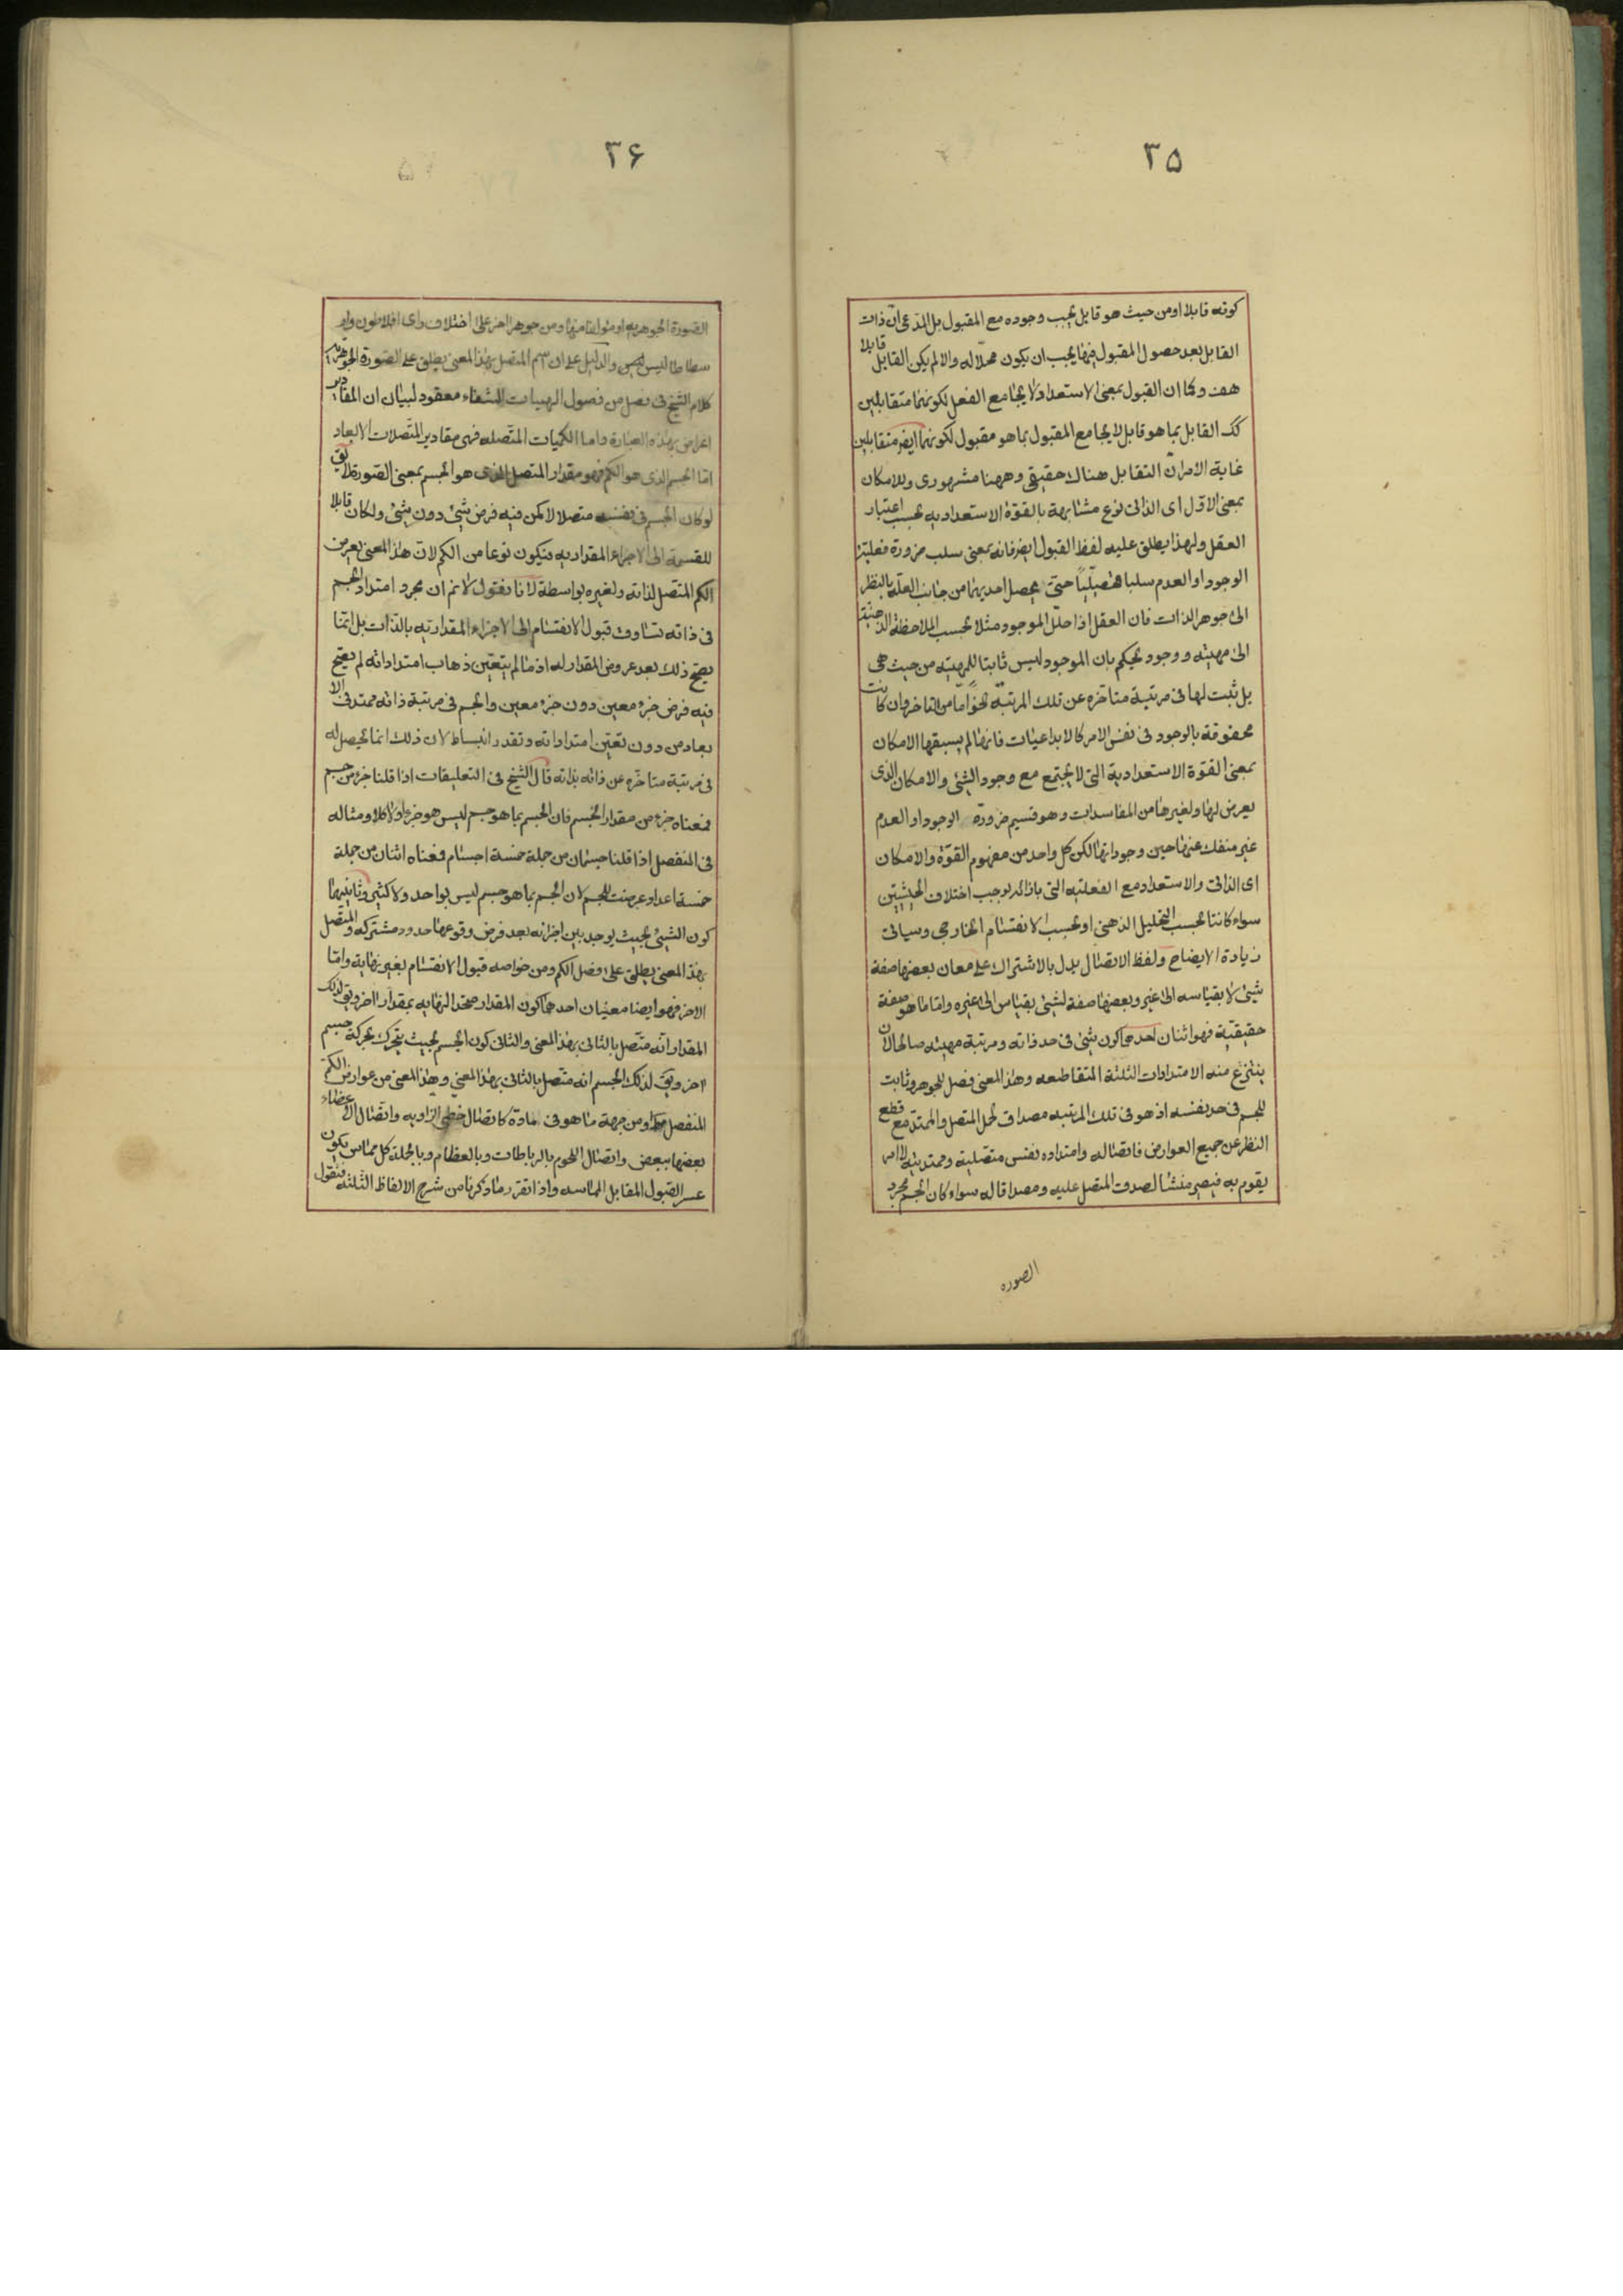 ٣٥
كونه قابلا او من حيث هو قابل يجب وجوده مع المقبول بل المدعى ان ذات
القابل بعد حصول المقبول فيها يجب ان يكون محلا له والا لم يكن القابل قابلا
هف وكما ان القبول بمعنى الاستعداد لا يجامع الفعل لكونهما متقابلين
كك القابل بما هو قابل لا يجامع المقبول بما هو مقبول لكونهما ايضر متقابلين
غاية الامر ان التقابل هناك حقيقى وههنا مشهورى وللامكان
بمعنى الاول اى الذاتى نوع مشابهة بالقوة الاستعدادية بحسب اعتبار
العقل ولهذا يطلق عليه لفظ القبول ايضر فانه بمعنى سلب ضرورة فعلية
الوجود او العدم سلبا تحصيليا حتى يحصل احديهما من جانب العلة بالنظر
الى جوهر الذات فان العقل اذا حلل الموجود مثلا بحسب الملاحظة الذهنية
الى مهيته ووجود يحكم بان الموجود ليس ثابتا للمهية من حيث هى
بل ثبت لها فى مرتبة متاخره عن تلك المرتبة نحوا ما من التاخر وان كانت
محفوفة بالوجود فى نفس الامر كالابداعيات فانها لم يسبقها الامكان
بمعنى القوة الاستعدادية التى لا يجتمع مع وجود الشئ والامكان الذى
يعرض لها ولغيرها من الفاسدات وهو قسيم ضرورة الوجود او العدم
غير منفك عنها حين وجوداتها لكن كل واحد من مفهوم القوة والامكان
اى الذاتى والاستعداد مع الفعلية التى بازائه يوجب اختلاف الحيثيتين
سواء كانتا بحسب التحليل الذهنى او بحسب الانقسام الخارجى وسياتى
زيادة الايضاح ولفظ الاتصال يدل بالاشتراك على معان بعضها صفة
شئ لا بقياسه الى غيره وبعضها صفة لشئ بقياس الى غيره واما ما هو صفة
حقيقية فهو اثنان احدهما كون شئ فى حد ذاته ومرتبة مهيته صالحا لان
ينتزع منه الامتدادات الثلثة المتقاطعه وهذا المعنى فصل للجوهر وثابت
للجسم فى حد نفسه اذ هو فى تلك المرتبه مصداق لحمل المتصل والممتد مع قطع
النظر عن جميع العوارض فاتصاله وامتداده نفس متصليته وممتديته لا امر
يقوم به فيصير منشا لصدق المتصل عليه ومصداقا له سواء كان الجسم مجرد
الصوره
٣۶
الصورة الجوهريه او مؤلفا منها ومن جوهر اخر على اختلاف راى افلاطون وار
سطاطاليس والدليل على ان اسم المتصل بهذا المعنى يطلق على الصورة الجوهرية
كلام الشيخ فى فصل من فصول الهيات الشفاء معقود لبيان ان المقادير
اعراض بهذه العبارة واما الكميات المتصله فهى مقادير المتصلات الابعاد
اما الجسم الذى هو الكم فهو مقدار المتصل الذى هو الجسم بمعنى الصورة لا يق
لو كان الجسم فى نفسه متصلا لامكن فيه فرض شئ دون شئ ولكان قابلا
للقسمة الى الاجزاء المقداريه فيكون نوعا من الكم لان هذا المعنى يعرض
الكم المتصل لذاته ولغيره بواسطة لانا نقول لا نم ان مجرد امتداد الجسم
فى ذاته يساوق قبول الانقسام الى الاجزاء المقدارية بالذات بل انما
يصح ذلك بعد عروض المقدار له اذ ما لم يتعين ذهاب امتداداته لم يصح
فيه فرض جزء معين دون جزء معين والجسم فى مرتبة ذاته ممتد فى الا
بعاد من دون تعين امتداداته وتقدر انبساط لان ذلك انما يحصل له
فى مرتبة متاخره عن ذاته بذاته قال الشيخ فى التعليقات اذا قلنا جزء من جسم
فمعناه جزء من مقدار الجسم فان الجسم بما هو جسم ليس هو جزءا ولا كلا ومثاله
فى المنفصل اذا قلنا جسمان من جملة خمسة اجسام فمعناه اثنان من جملة
خمسة اعداد عرضت للجسم لان الجسم بما هو جسم ليس بواحد ولا كثير وثانيهما
كون الشئ بحيث يوجد بين اجزائه بعد فرض وقوعها حدود مشتركه والمتصل
بهذ المعنى يطلق على فصل الكم ومن خواصه قبول الانقسام بغير نهاية واما
الاخر فهو ايضا معنيان احدهما كون المقدار متحد النهايه بمقدار اخر ويق لذلك
المقدار انه متصل بالثانى بهذا المعنى والثانى كون الجسم بحيث يتحرك بحركة جسم
اخر ويق لذلك الجسم انه متصل بالثانى بهذا المعنى وهذا المعنى من عوارض الكم
المنفصل او من جهة ما هو فى مادة كاتصال خطى الزاويه واتصال الاعضاء
بعضها ببعض واتصال اللحوم بالرباطات وبالعظام وبالجملة كل مماس يكون
عسر القبول المقابل المماسه واذا تقرر ما ذكرنا من شرح الالفاظ الثلثه فنقول